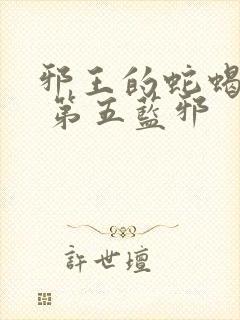 邪王的蛇蝎
第五藍邪
許世壇